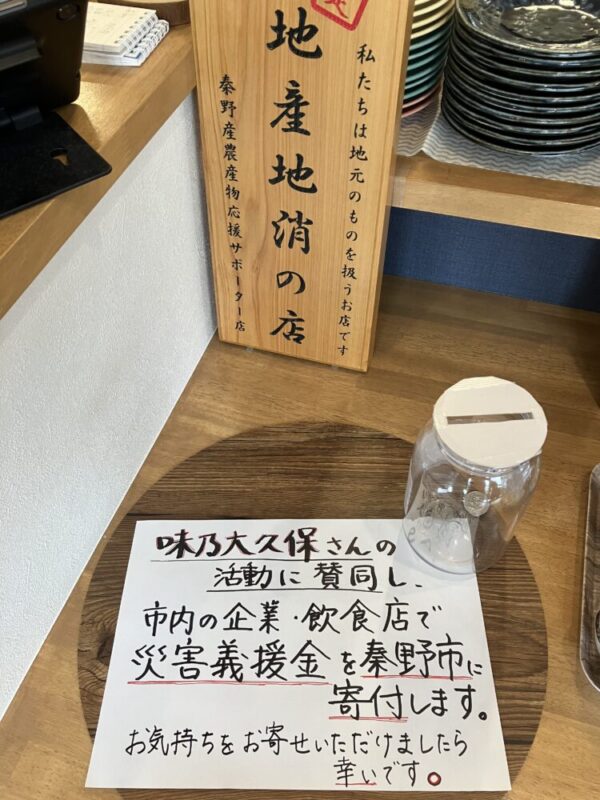 私たちは地元のものを扱うお店です
地産地消の店
秦野産農産物応援サポーター店
味乃大久保さんの
活動に賛同し、
市内の企業・飲食店で
災害義援金を秦野市に
寄付します。
お気持ちをお寄せいただけましたら
幸いです。